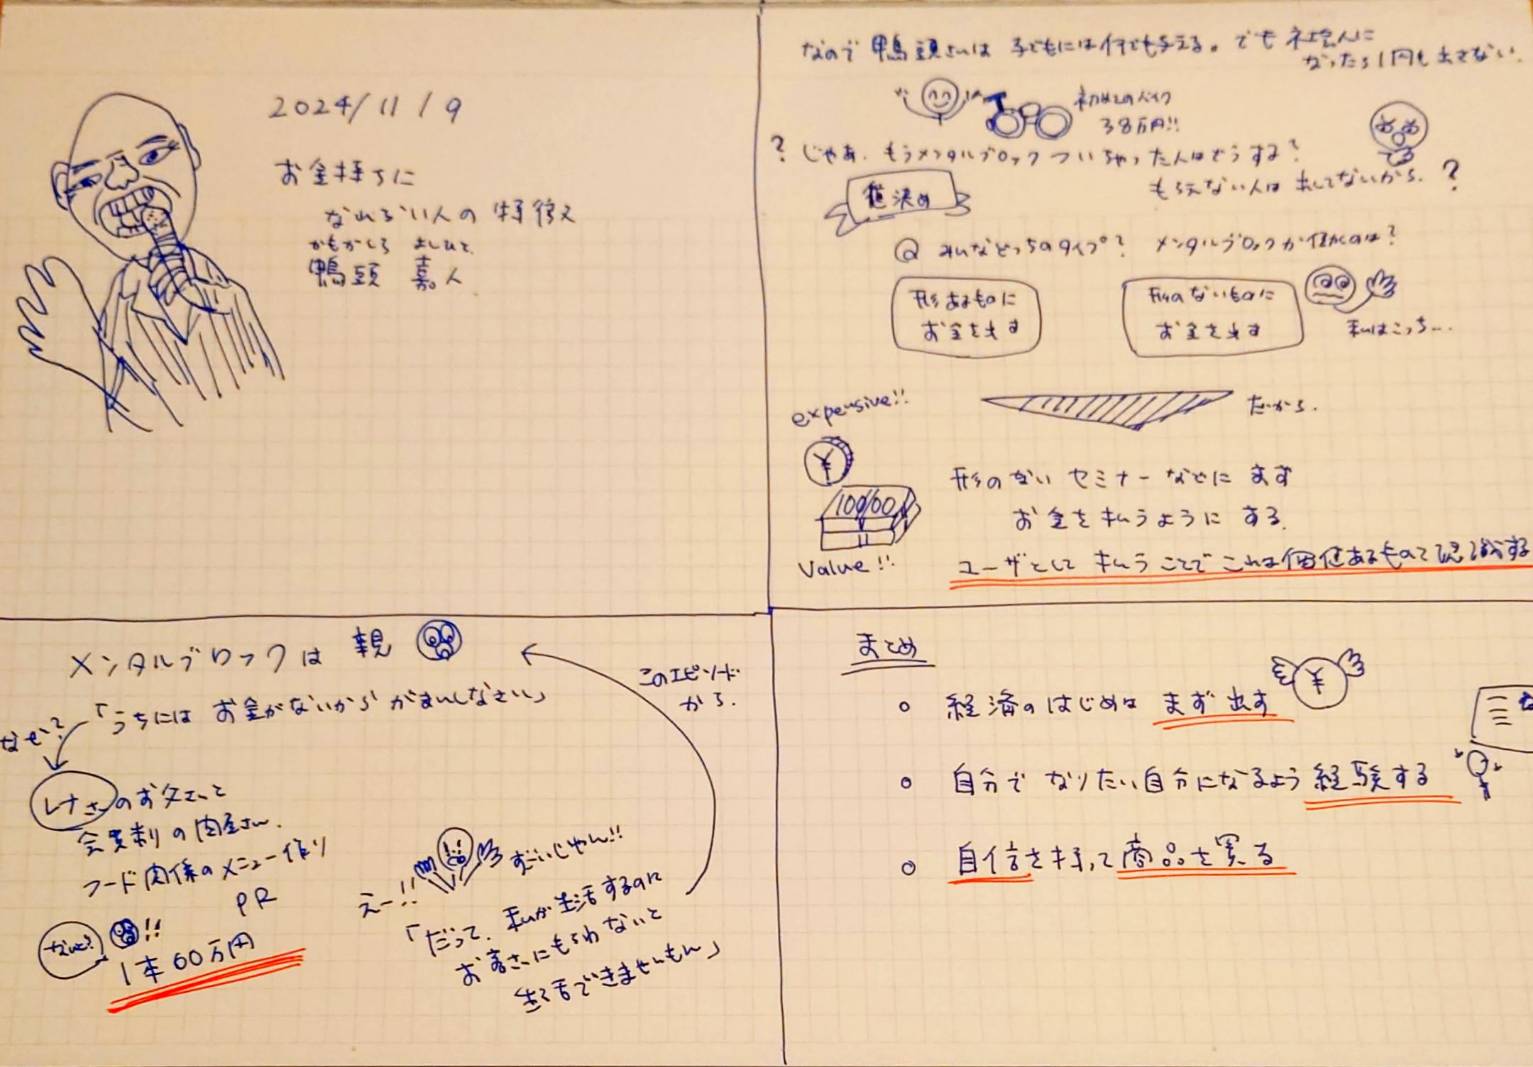 2024/11/9
お金持ちに
なれない人の特徴
かもがしら よしひと
鴨頭 嘉人
メンタルブロックは 親
「うちには お金がないから がまんしなさい」
なぜ?
このエピソード
から
レナさんのお父さんと
会員制の肉屋さん
フード関係のメニュー作り
PR
なんと? !!
1本60万円
えー!! すごいじゃん!!
「だって、私が生活するのに
お客さんにもらわないと
生活できませんもん」
なので 鴨頭さんは 子どもには何でも与える。でも 社会人に
なったら1円も出さない.
初めてのバイク
38万円!!
? じゃあ、もうメンタルブロック ついちゃった人はどうする?
もらえない人は 出してないから. ?
決め
Q みんなどっちのタイプ? メンタルブロックが強いのは?
形あるものに
お金を出す
形のないものに
お金を出す
私はこっち...
expensive!!
だから.
¥
100/00
Value!!
形のない セミナーなどに まず
お金を払うように する.
ユーザとして 払うことで これは価値あるものって認識する
まとめ
¥
○ 経済のはじめは まず出す
○ 自分で なりたい自分になるよう 経験する
○ 自信を持って商品を買る